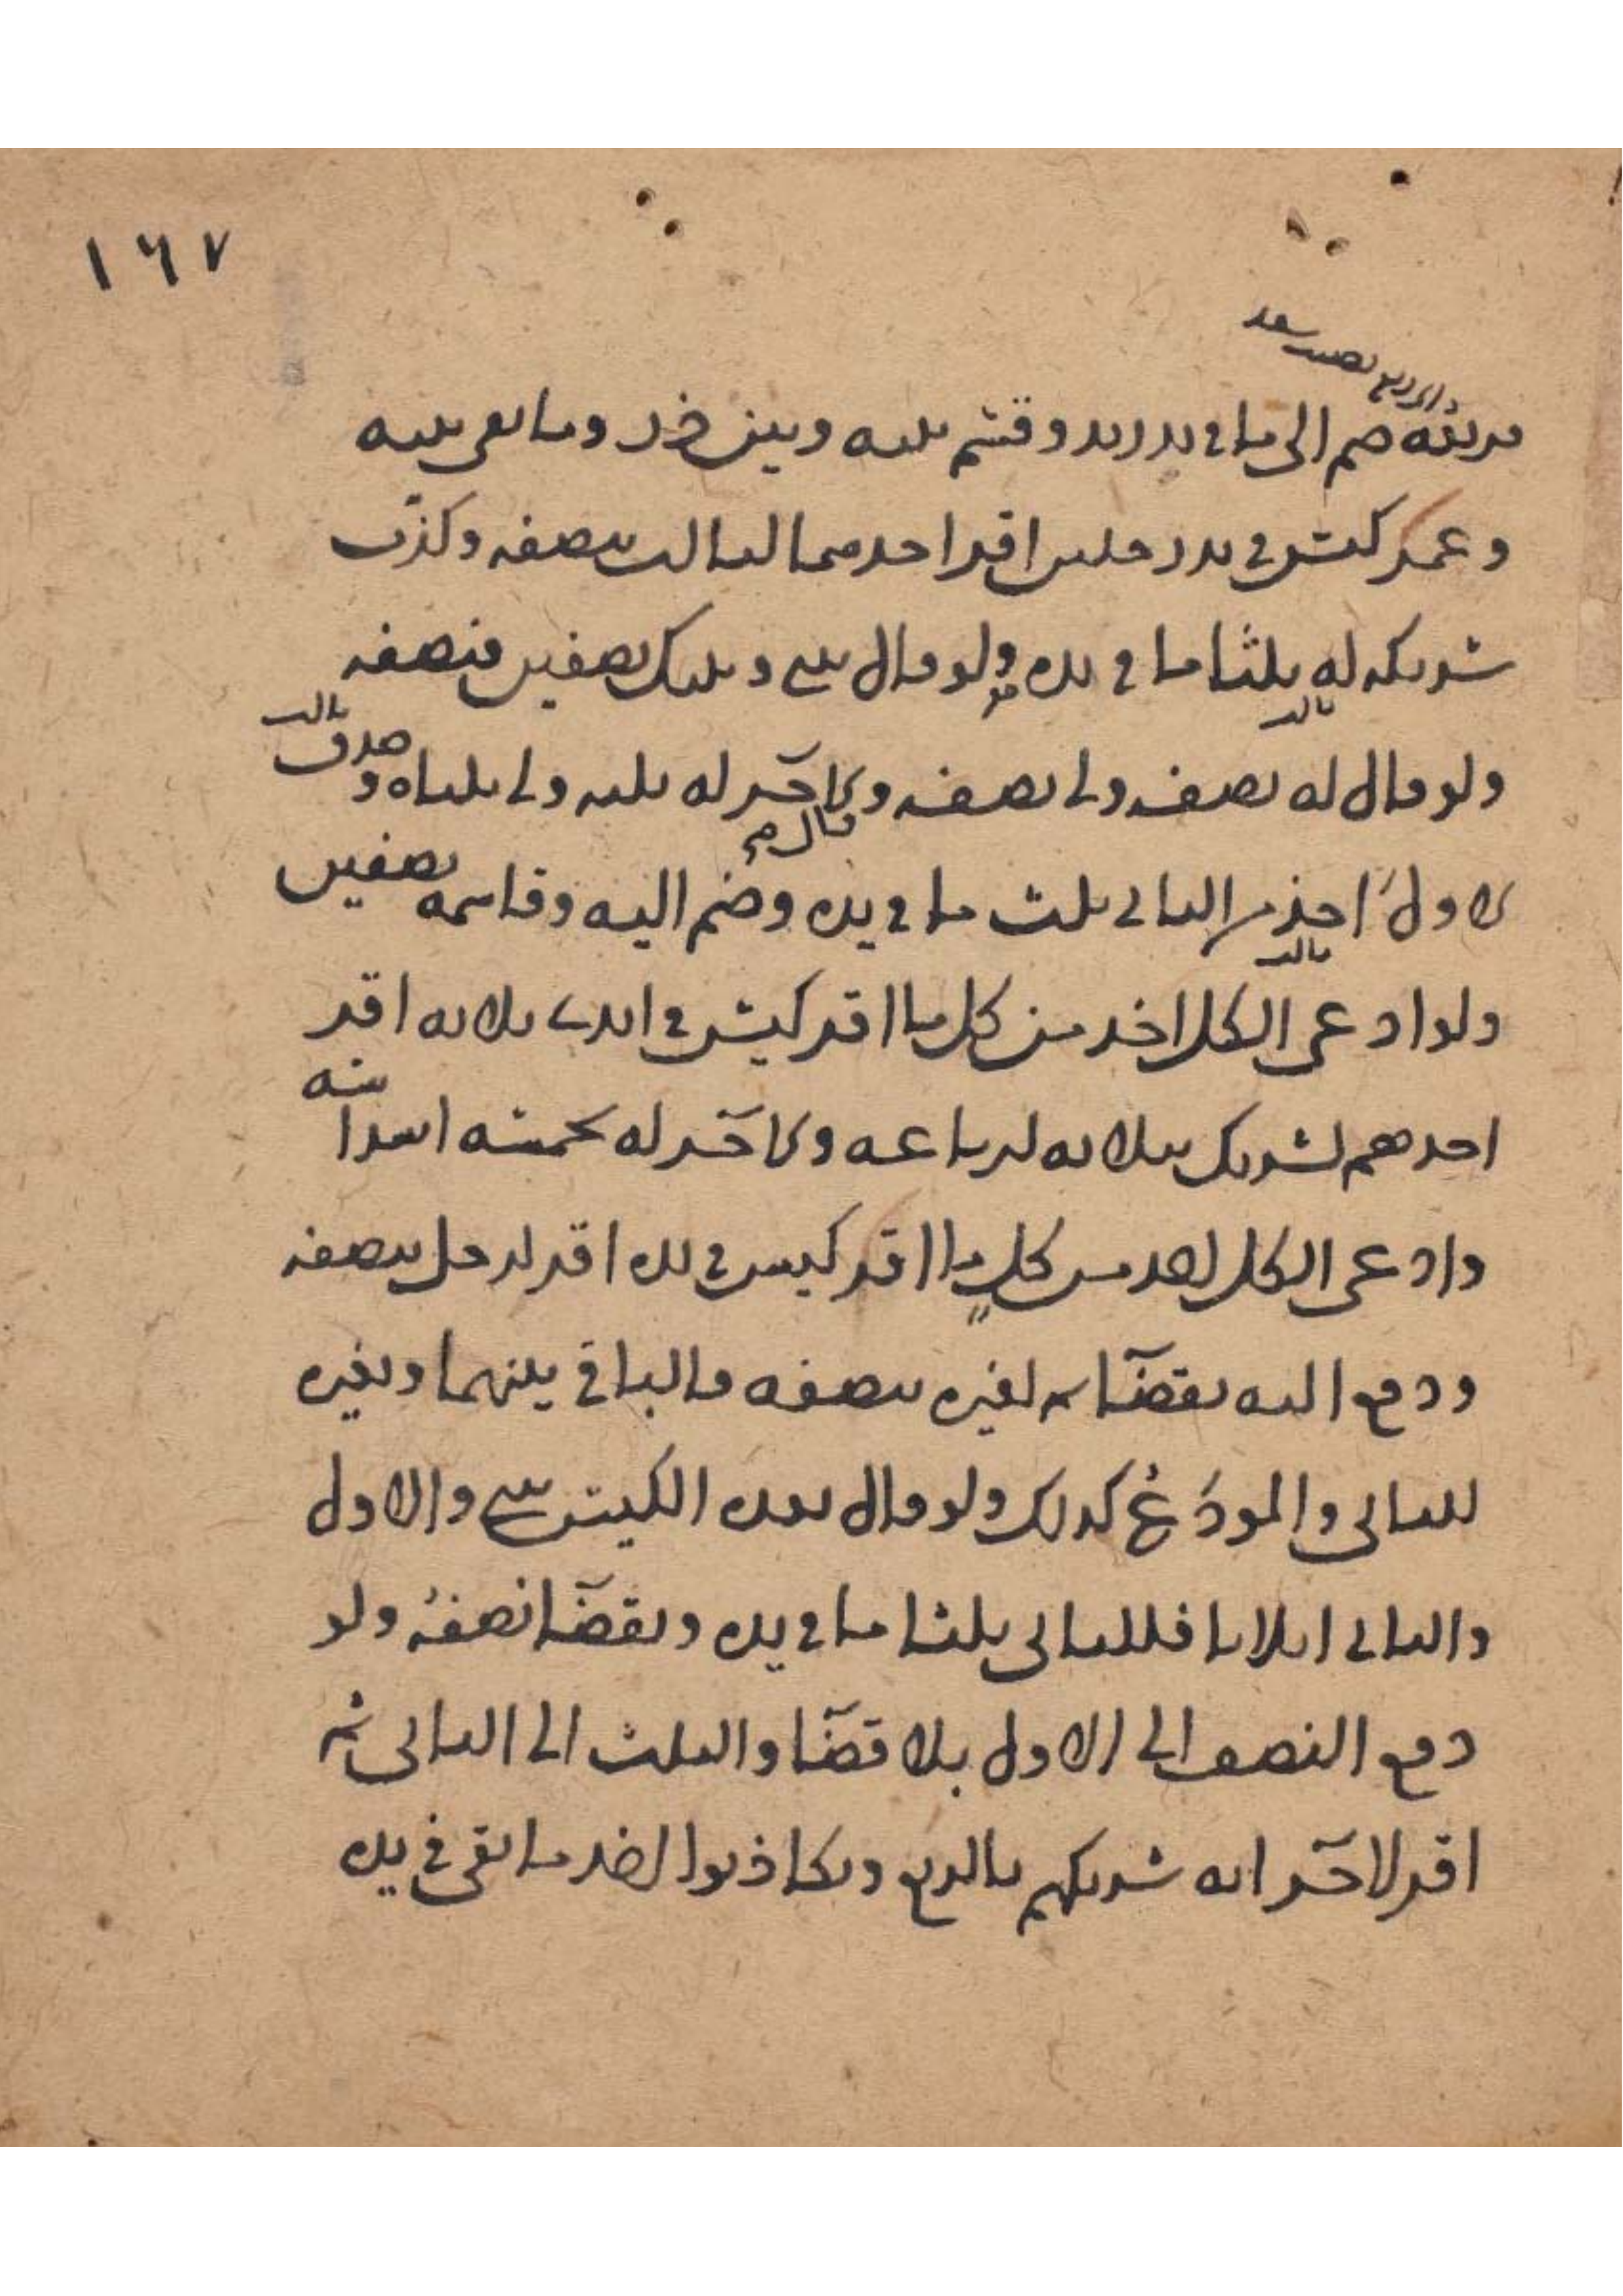 ١٦٧
من يده ضم الى ما في يد زيد وقسم بينه وبين خالد وما بقي بينه
وعمر كيس في يد رجلين اقر احدهما لثالث بنصفه وكذب
شريكه له ثلثا ما في يده ولو قال بيني وبينك نصفين فنصفه
ولو قال له نصفه ولي نصفه والآخر له ثلثه ولي ثلثاه وصدق
ثالث
الاول اخذ من الثاني ثلث ما في يده وضم اليه وقاسمه نصفين
ولو ادعى الكل اخذ من كل ما اقر كيس في ايدي ثلاثة اقر
احدهم لشريك بثلاثة ارباعه والآخر له بخمسة اسدا
سه
وادعى الكل اخذ من كل ما اقر كيس في يده اقر لرجل بنصفه
ودفع اليه بقضاء ثم لغيره بنصفه فالباقي بينهما وبغيره
للثاني والمودع كذلك ولو قال بعده الكيس بيني والاول
والثاني اثلاثا فللثاني ثلثا ما في يده وبقضا نصفه ولو
دفع النصف الى الاول بلا قضا والثلث الى الثاني ثم
اقر لآخر انه شريكهم بالربع وتكاذبوا اخذ ما بقي في يده